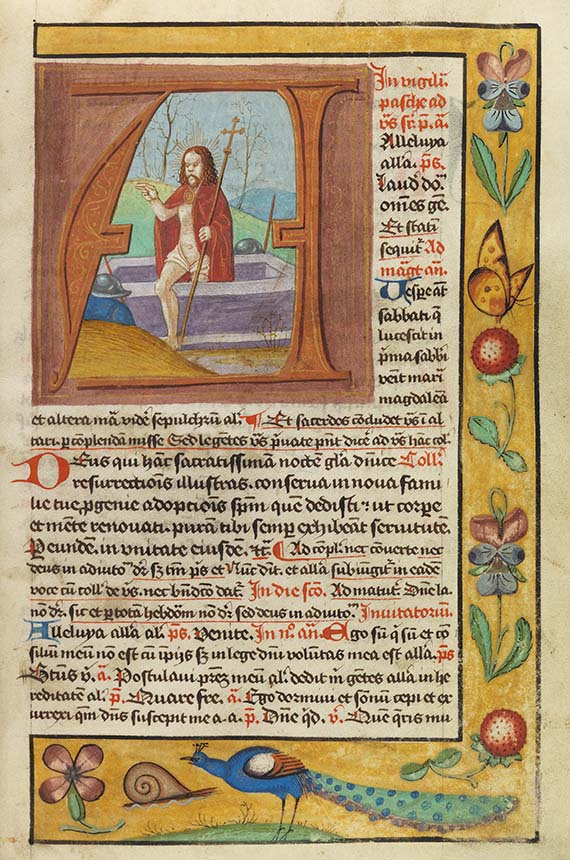 In vigili͂
pasche ad
v̄s sr̄. p̄. ā.
Alleluya
all'a. p̄s.
Laud' do͂.
om̄es ge͂.
Et stati͂
sequit' Ad
magt' an̄.
Vespe aut̄
sabbati q̄
lucescit in
p̄ma sabbi
venit mari͂
magdalen̄
et altera ma'. vide' sepulchru͂ al'. ¶ Et sacerdos co͂cludet v̄s ī al
tari. p͂ co͂plenda͂ misse Sed legetes v̄s p̄uate pn̄t dice' ad v̄s hac col'.
Deus qui hanc sacratissima͂ nocte͂ gl'a d͂nice Coll'.
resurrectionis illustras. conserua in noua fami
lie tue. p̄genie adoptionis sp̄m que͂ dedisti ⁊ ut corpore
et mente renouati. pura͂ tibi semper exhibeant seruitute͂.
P eunde͂. in unitate eiusde͂. ⁊c̄. ¶ Ad co͂pl'. nec co͂uerte nec
deus in adiuto' d͂r. sz tm̄ p̄s et Nu͂c dit'. et all'a subiu͂git' in eade͂
voce cu͂ coll' de v̄s. nec bn̄dco͂ dat'. In die sc͂o. Ad matut'. D͂ne la.
no͂ d͂r. sic et p̄ tota͂ hebdom̄ no͂ d͂r sed deus in adiuto'. Inuitatoriu͂.
Alleluya all'a al'. p̄s. Venite. In n°. an̄. Ego su͂ q̄ su͂ et co͂
siliu͂ meu͂ no͂ est cu͂ ip̄iis sz in lege dn̄i volu͂tas mea est all'a. p̄s
Bt̄us v̄. ā. Postulaui prez meu͂ al'. dedit m̄ ge͂tes all'a in he
reditate͂ al'. p̄. Quare fre. ā. Ego dormiui et sonu͂ cepi et ex
urrexi qm̄ dn̄s suscepit me a. a. p̄. D͂ne q͂d. v̄. Que͂ q̄ris mu